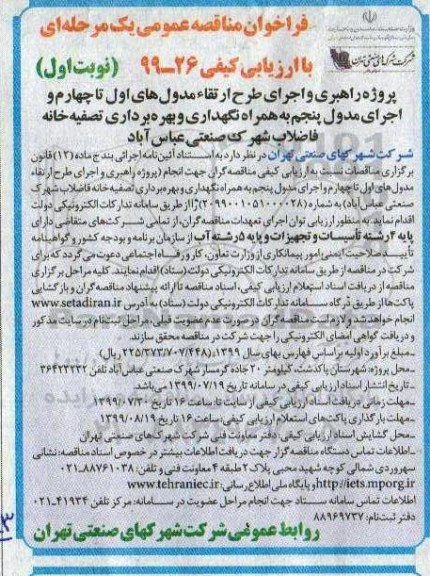 فراخوان مناقصه عمومی یک مرحله‌ای
با ارزیابی کیفی ۲۶-۹۹ (نوبت اول)
شرکت شهرک‌های صنعتی تهران
پروژه راهبری و اجرای طرح ارتقاء مدول‌های اول تا چهارم و
اجرای مدول پنجم به همراه نگهداری و بهره برداری تصفیه خانه
فاضلاب شهرک صنعتی عباس آباد
شرکت شهرکهای صنعتی تهران در نظر دارد به استناد آئین‌نامه اجرائی بند ج ماده (۱۲) قانون
برگزاری مناقصات نسبت به ارزیابی کیفی مناقصه گران جهت انجام (پروژه راهبری و اجرای طرح ارتقاء
مدول های اول تا چهارم و اجرای مدول پنجم به همراه نگهداری و بهره برداری تصفیه خانه فاضلاب شهرک
صنعتی عباس آباد) به شماره (۲۰۹۹۰۰۱۰۵۱۰۰۰۰۲۸) را از طریق سامانه تدارکات الکترونیکی دولت
اقدام نماید. به منظور ارزیابی توان اجرای تعهدات مناقصه گران، از تمامی شرکت های متقاضی دارای
پایه ۴ رشته تأسیسات و تجهیزات و پایه ۵ رشته آب از سازمان برنامه و بودجه کشور و گواهینامه
تأیید صلاحیت ایمنی امور پیمانکاری از وزارت تعاون، کار و رفاه اجتماعی دعوت می گردد که برای
شرکت در مناقصه از طریق سامانه تدارکات الکترونیکی دولت (ستاد) اقدام نمایند. کلیه مراحل برگزاری
مناقصه از دریافت اسناد استعلام ارزیابی کیفی، اسناد مناقصه تا ارائه پیشنهاد مناقصه گران و بازگشایی
پاکت‌ها از طریق درگاه سامانه تدارکات الکترونیکی دولت (ستاد) به آدرس www.setadiran.ir
انجام خواهد شد و لازم است مناقصه گران در صورت عدم عضویت قبلی، مراحل ثبت نام در سایت مذکور
و دریافت گواهی امضای الکترونیکی را جهت شرکت در مناقصه محقق سازند.
ـ مبلغ برآورد اولیه بر اساس فهارس بهای سال ۱۳۹۹، (۲۲۵/۳۷۳/۷۰۷/۴۴۸ ریال)
ـ محل پروژه: شهرستان پاکدشت، کیلومتر ۲۰ جاده گرمسار شهرک صنعتی عباس آباد تلفن ۳۶۴۲۲۳۳۲
ـ تاریخ انتشار اسناد ارزیابی کیفی در سامانه تاریخ ۱۳۹۹/۰۷/۱۹ می باشد.
ـ مهلت زمانی دریافت اسناد ارزیابی کیفی از سایت تا ساعت ۱۶ تاریخ ۱۳۹۹/۰۷/۳۰
ـ مهلت بارگذاری پاکت های استعلام ارزیابی کیفی: ساعت ۱۶ تاریخ ۱۳۹۹/۰۸/۱۹
ـ محل گشایش اسناد ارزیابی کیفی: دفتر معاونت فنی شرکت شهرک های صنعتی تهران
ـ اطلاعات تماس دستگاه مناقصه گزار جهت دریافت اطلاعات بیشتر در خصوص اسناد مناقصه: نشانی:
سهروردی شمالی کوچه شهید محبی پلاک ۲ طبقه ۴ معاونت فنی و تلفن: ۸۸۷۶۱۰۳۸-۰۲۱
http://iets.mporg.ir و پایگاه ملی اطلاع رسانی: www.tehraniec.ir
اطلاعات تماس سامانه ستاد جهت انجام مراحل عضویت در سامانه: مرکز تلفن ۴۱۹۳۴-۰۲۱
دفتر ثبت نام: ۸۸۹۶۹۷۳۷
روابط عمومی شرکت شهرکهای صنعتی تهران